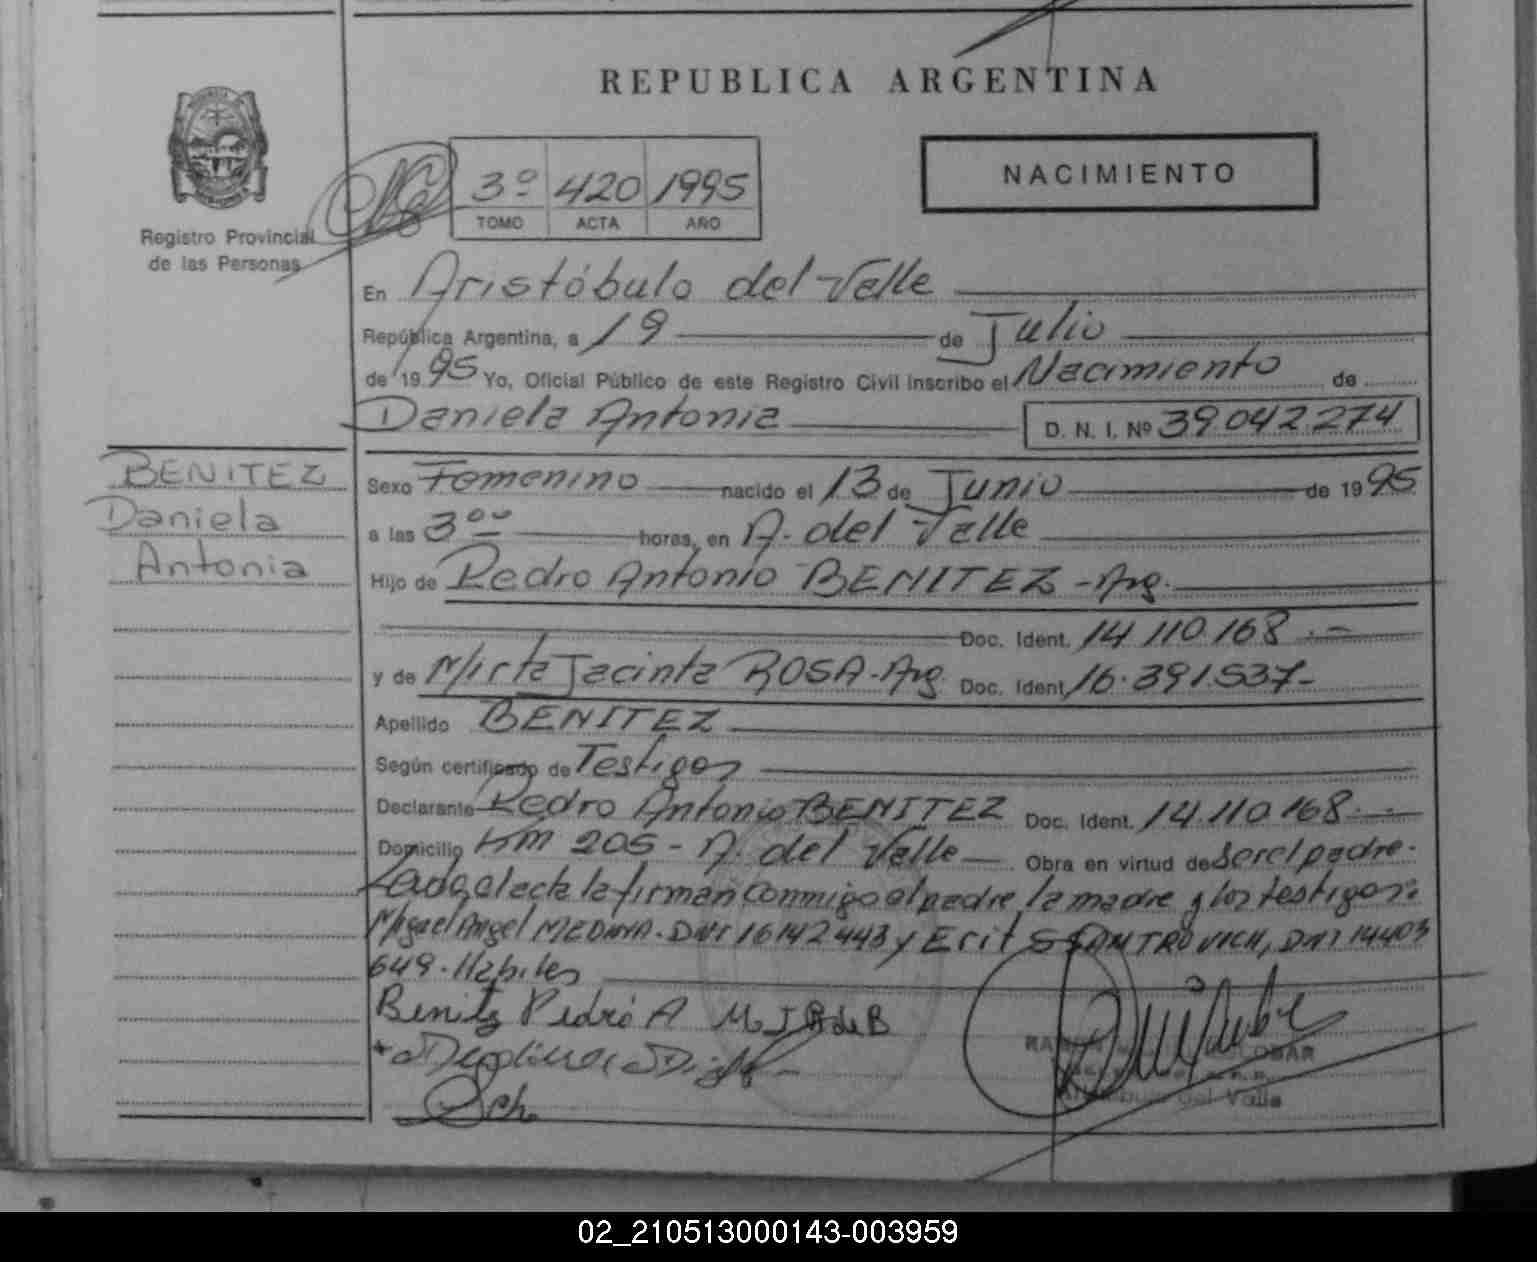 REPUBLICA ARGENTINA
NACIMIENTO
3º 420 1995
TOMO ACTA AÑO
Registro Provincial
de las Personas
En Aristóbulo del Valle
República Argentina, a 19 de Julio
de 19 95 Yo, Oficial Público de este Registro Civil inscribo el Nacimiento de
Daniela Antonia D. N. I. Nº 39.042.274
BENITEZ
Daniela
Antonia
Sexo Femenino nacido el 13 de Junio de 19 95
a las 3 ºº horas, en A. del Valle
Hijo de Pedro Antonio BENITEZ - Arg.
Doc. Ident. 14.110.168.-
y de Mirta Jacinta ROSA - Arg. Doc. Ident. 16.391.537-
Apellido BENITEZ
Según certificado de Testigos
Declarante Pedro Antonio BENITEZ Doc. Ident. 14.110.168.-
Domicilio Km 205 - A. del Valle Obra en virtud de Ser el padre.
el acta la firman conmigo el padre, la madre y los testigos:
Miguel Angel MEDINA. DNI 16142443 y Erit DNI 14403
649. Hábiles
Benitz Pedro A M. J. R de B
ESCOBAR
del Valle
02_210513000143-003959